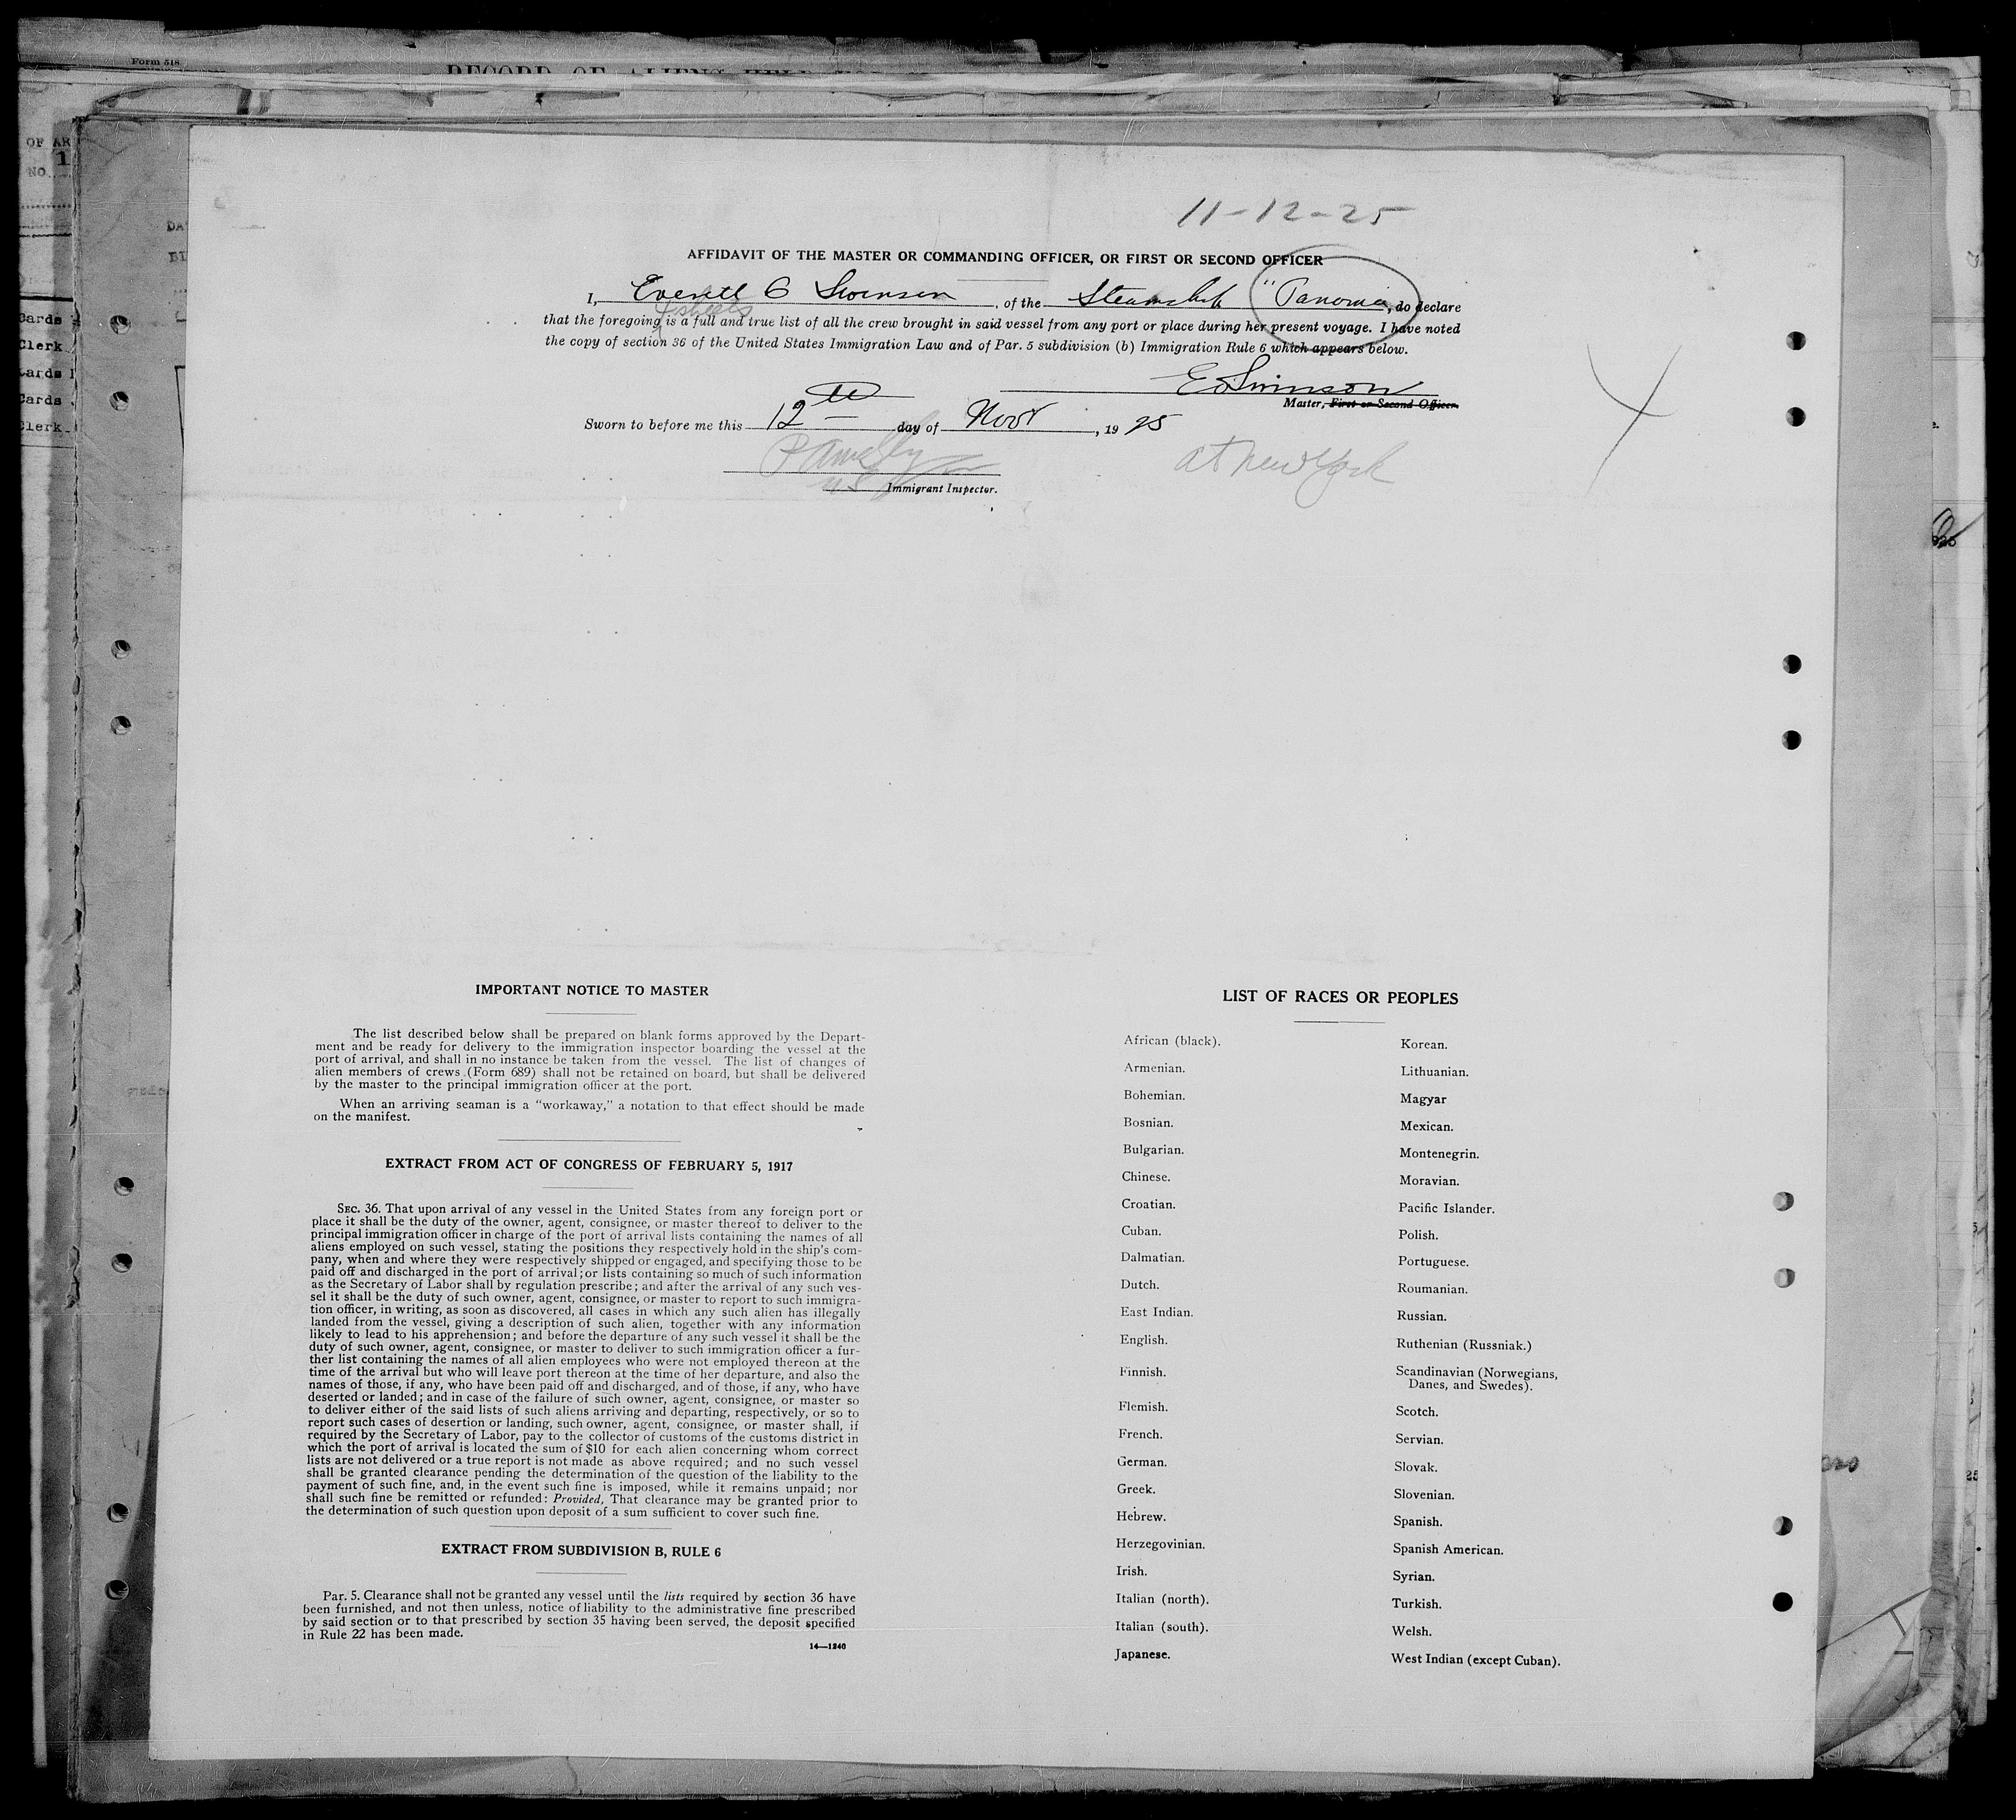 Form 518
RECORD OF ALIENS HELD
OF AR
1
NO.
DA
Cards
Clerk
Cards
Cards
Clerk
11-12-25
AFFIDAVIT OF THE MASTER OR COMMANDING OFFICER, OR FIRST OR SECOND OFFICER
I, Everett C Swenson, of the Steamship "Panoma, do declare
4 sheets
that the foregoing is a full and true list of all the crew brought in said vessel from any port or place during her present voyage. I have noted
the copy of section 36 of the United States Immigration Law and of Par. 5 subdivision (b) Immigration Rule 6 which appears below.
Master, First or Second Officer.
Sworn to before me this 12th day of Nov, 19 25
at New York
Immigrant Inspector.
IMPORTANT NOTICE TO MASTER
The list described below shall be prepared on blank forms approved by the Depart-
ment and be ready for delivery to the immigration inspector boarding the vessel at the
port of arrival, and shall in no instance be taken from the vessel. The list of changes of
alien members of crews (Form 689) shall not be retained on board, but shall be delivered
by the master to the principal immigration officer at the port.
When an arriving seaman is a "workaway," a notation to that effect should be made
on the manifest.
EXTRACT FROM ACT OF CONGRESS OF FEBRUARY 5, 1917
SEC. 36. That upon arrival of any vessel in the United States from any foreign port or
place it shall be the duty of the owner, agent, consignee, or master thereof to deliver to the
principal immigration officer in charge of the port of arrival lists containing the names of all
aliens employed on such vessel, stating the positions they respectively hold in the ship's com-
pany, when and where they were respectively shipped or engaged, and specifying those to be
paid off and discharged in the port of arrival; or lists containing so much of such information
as the Secretary of Labor shall by regulation prescribe; and after the arrival of any such ves-
sel it shall be the duty of such owner, agent, consignee, or master to report to such immigra-
tion officer, in writing, as soon as discovered, all cases in which any such alien has illegally
landed from the vessel, giving a description of such alien, together with any information
likely to lead to his apprehension; and before the departure of any such vessel it shall be the
duty of such owner, agent, consignee, or master to deliver to such immigration officer a fur-
ther list containing the names of all alien employees who were not employed thereon at the
time of the arrival but who will leave port thereon at the time of her departure, and also the
names of those, if any, who have been paid off and discharged, and of those, if any, who have
deserted or landed; and in case of the failure of such owner, agent, consignee, or master so
to deliver either of the said lists of such aliens arriving and departing, respectively, or so to
report such cases of desertion or landing, such owner, agent, consignee, or master shall, if
required by the Secretary of Labor, pay to the collector of customs of the customs district in
which the port of arrival is located the sum of $10 for each alien concerning whom correct
lists are not delivered or a true report is not made as above required; and no such vessel
shall be granted clearance pending the determination of the question of the liability to the
payment of such fine, and, in the event such fine is imposed, while it remains unpaid; nor
shall such fine be remitted or refunded: Provided, That clearance may be granted prior to
the determination of such question upon deposit of a sum sufficient to cover such fine.
EXTRACT FROM SUBDIVISION B, RULE 6
Par. 5. Clearance shall not be granted any vessel until the lists required by section 36 have
been furnished, and not then unless, notice of liability to the administrative fine prescribed
by said section or to that prescribed by section 35 having been served, the deposit specified
in Rule 22 has been made.
14—1240
LIST OF RACES OR PEOPLES
African (black).
Armenian.
Bohemian.
Bosnian.
Bulgarian.
Chinese.
Croatian.
Cuban.
Dalmatian.
Dutch.
East Indian.
English.
Finnish.
Flemish.
French.
German.
Greek.
Hebrew.
Herzegovinian.
Irish.
Italian (north).
Italian (south).
Japanese.
Korean.
Lithuanian.
Magyar
Mexican.
Montenegrin.
Moravian.
Pacific Islander.
Polish.
Portuguese.
Roumanian.
Russian.
Ruthenian (Russniak.)
Scandinavian (Norwegians,
Danes, and Swedes).
Scotch.
Servian.
Slovak.
Slovenian.
Spanish.
Spanish American.
Syrian.
Turkish.
Welsh.
West Indian (except Cuban).